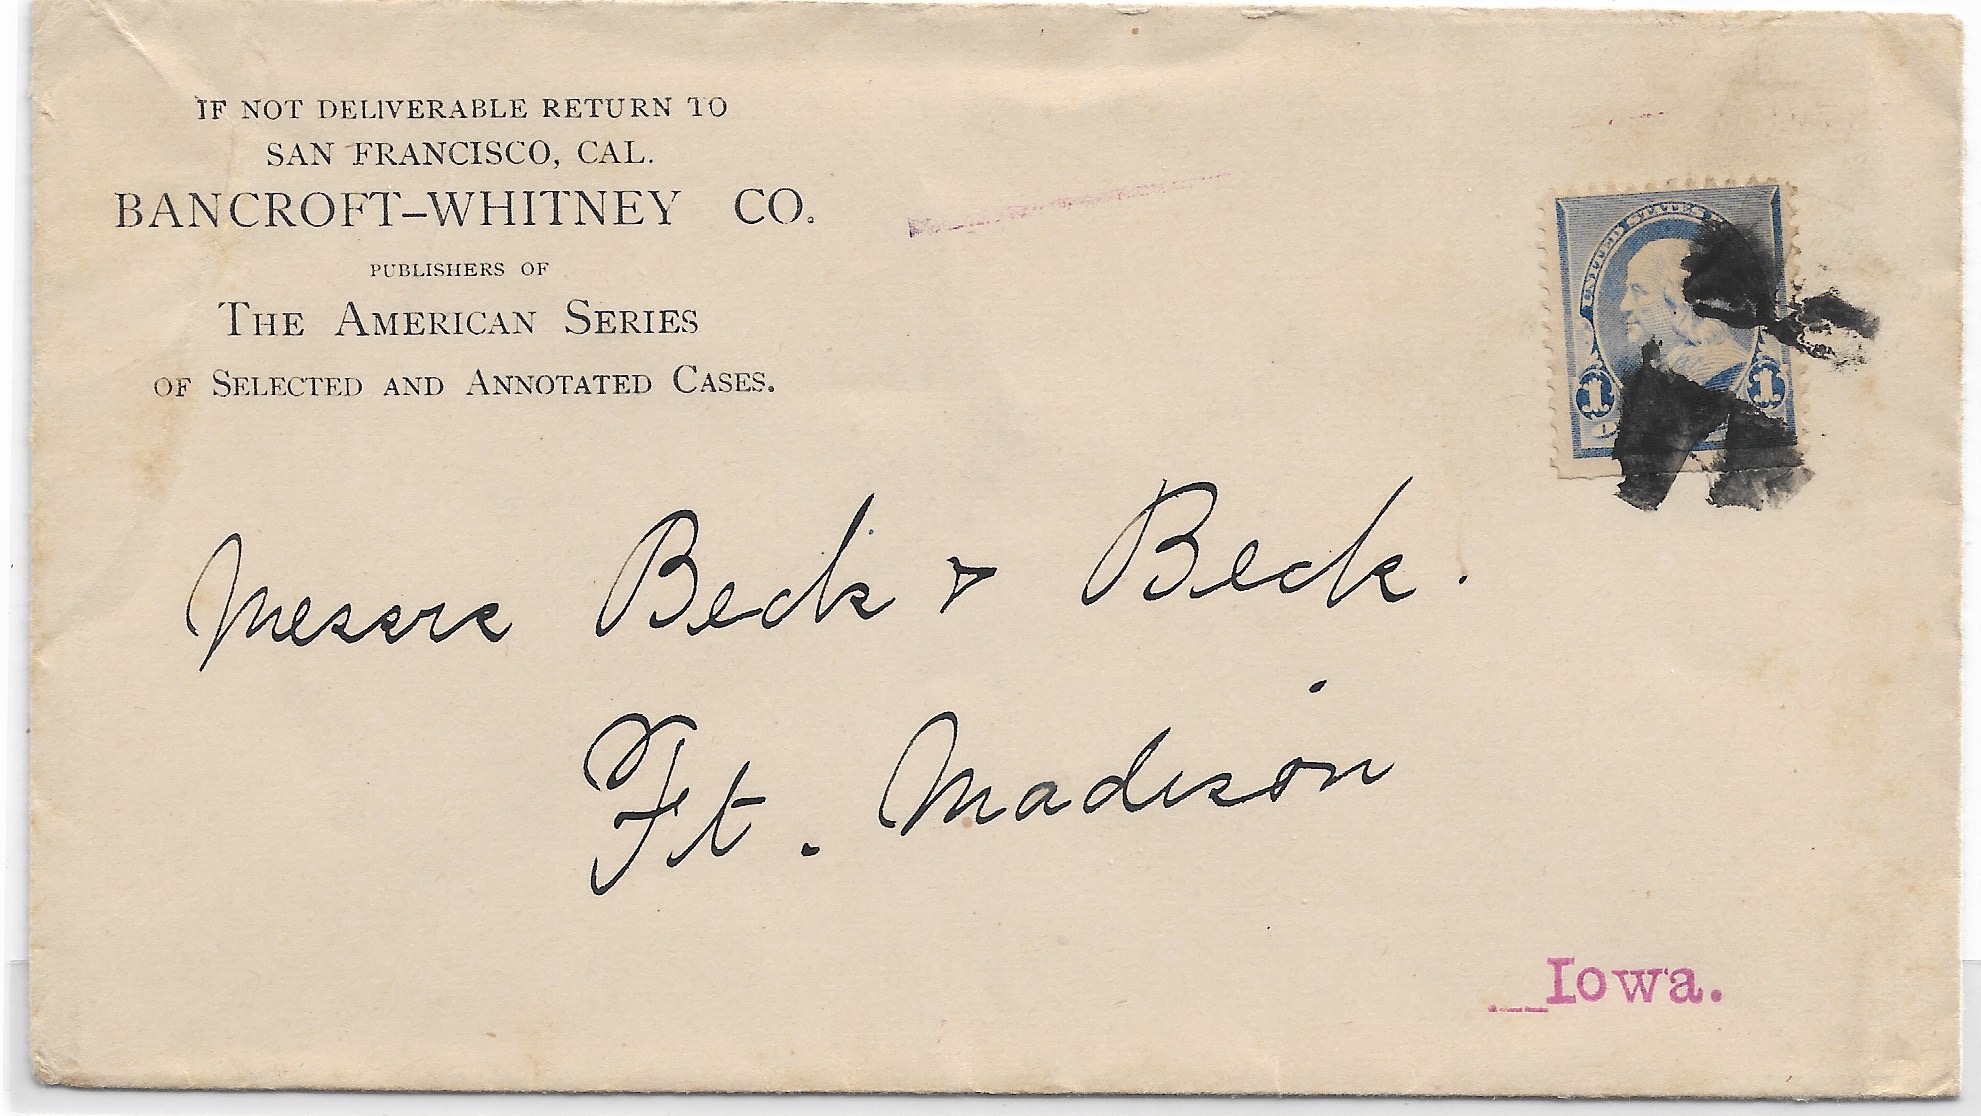 IF NOT DELIVERABLE RETURN TO
SAN FRANCISCO, CAL.
BANCROFT-WHITNEY CO.
PUBLISHERS OF
THE AMERICAN SERIES
OF SELECTED AND ANNOTATED CASES.
UNITED STATES
1 1
Messrs Beck & Beck.
Ft. Madison
Iowa.